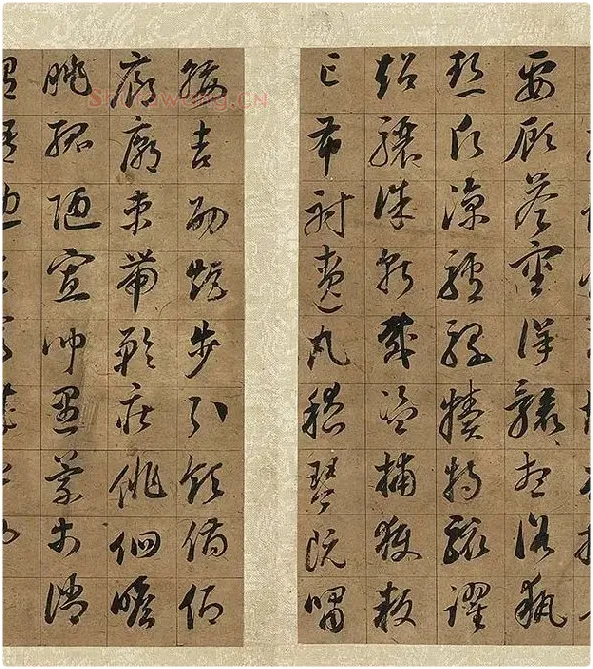 要顧答審詳骸想浴執
熱願涼驢騾犢特駭躍
超驤誅斬賊盜捕獲叛
亡布射遼丸嵇琴阮嘯
綏吉劭矩步引領俯仰
廊廟束帶矜莊俳佪瞻
眺孤陋寡聞愚蒙等誚